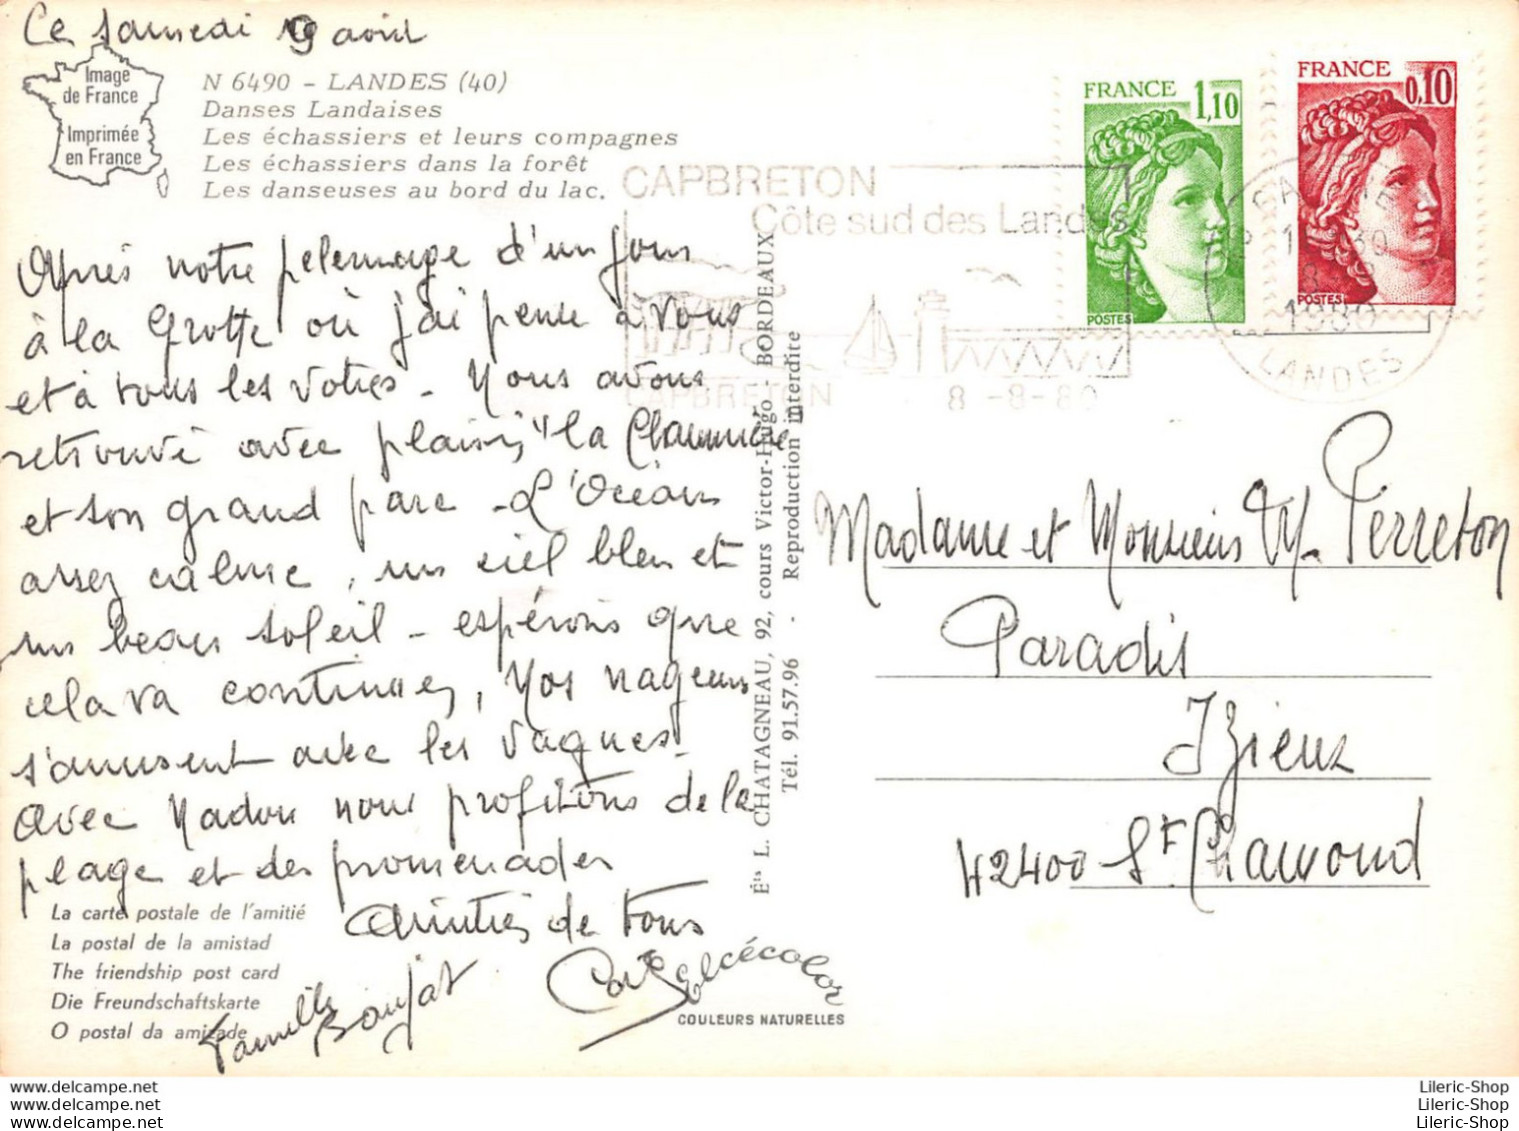 Ce samedi 9 août
Image
de France
Imprimée
en France
N 6490 - LANDES (40)
Danses Landaises
Les échassiers et leurs compagnes
Les échassiers dans la forêt
Les danseuses au bord du lac.
Après notre pelerinage d'un jour
à la Grotte où j'ai pensé à vous
et à tous les votres - Nous avons
retrouvé avec plaisir "la Chaumière"
et son grand parc - L'Océan
assez calme, un ciel bleu et
un beau soleil - espérons que
cela va continuer, Nos nageurs
s'amusent avec les vagues -
avec Nadou nous profitons de la
plage et des promenades
Amitiés de tous
Famille Boujat
La carte postale de l'amitié
La postal de la amistad
The friendship post card
Die Freundschaftskarte
O postal da amizade
Éts L. CHATAGNEAU, 92, cours Victor-Hugo - BORDEAUX
Tél. 91.57.96 - Reproduction interdite
elcécolor
COULEURS NATURELLES
CAPBRETON
Côte sud des Landes
CAPBRETON
8-8-80
FRANCE
1,10
POSTES
FRANCE
0,10
POSTES
1980
LANDES
Madame et Monsieur M. Perreton
Paradis
Izieux
42400 St Chamond
Lileric-Shop
Lileric-Shop
Lileric-Shop
Lileric-Shop
Lileric-Shop
Lileric-Shop